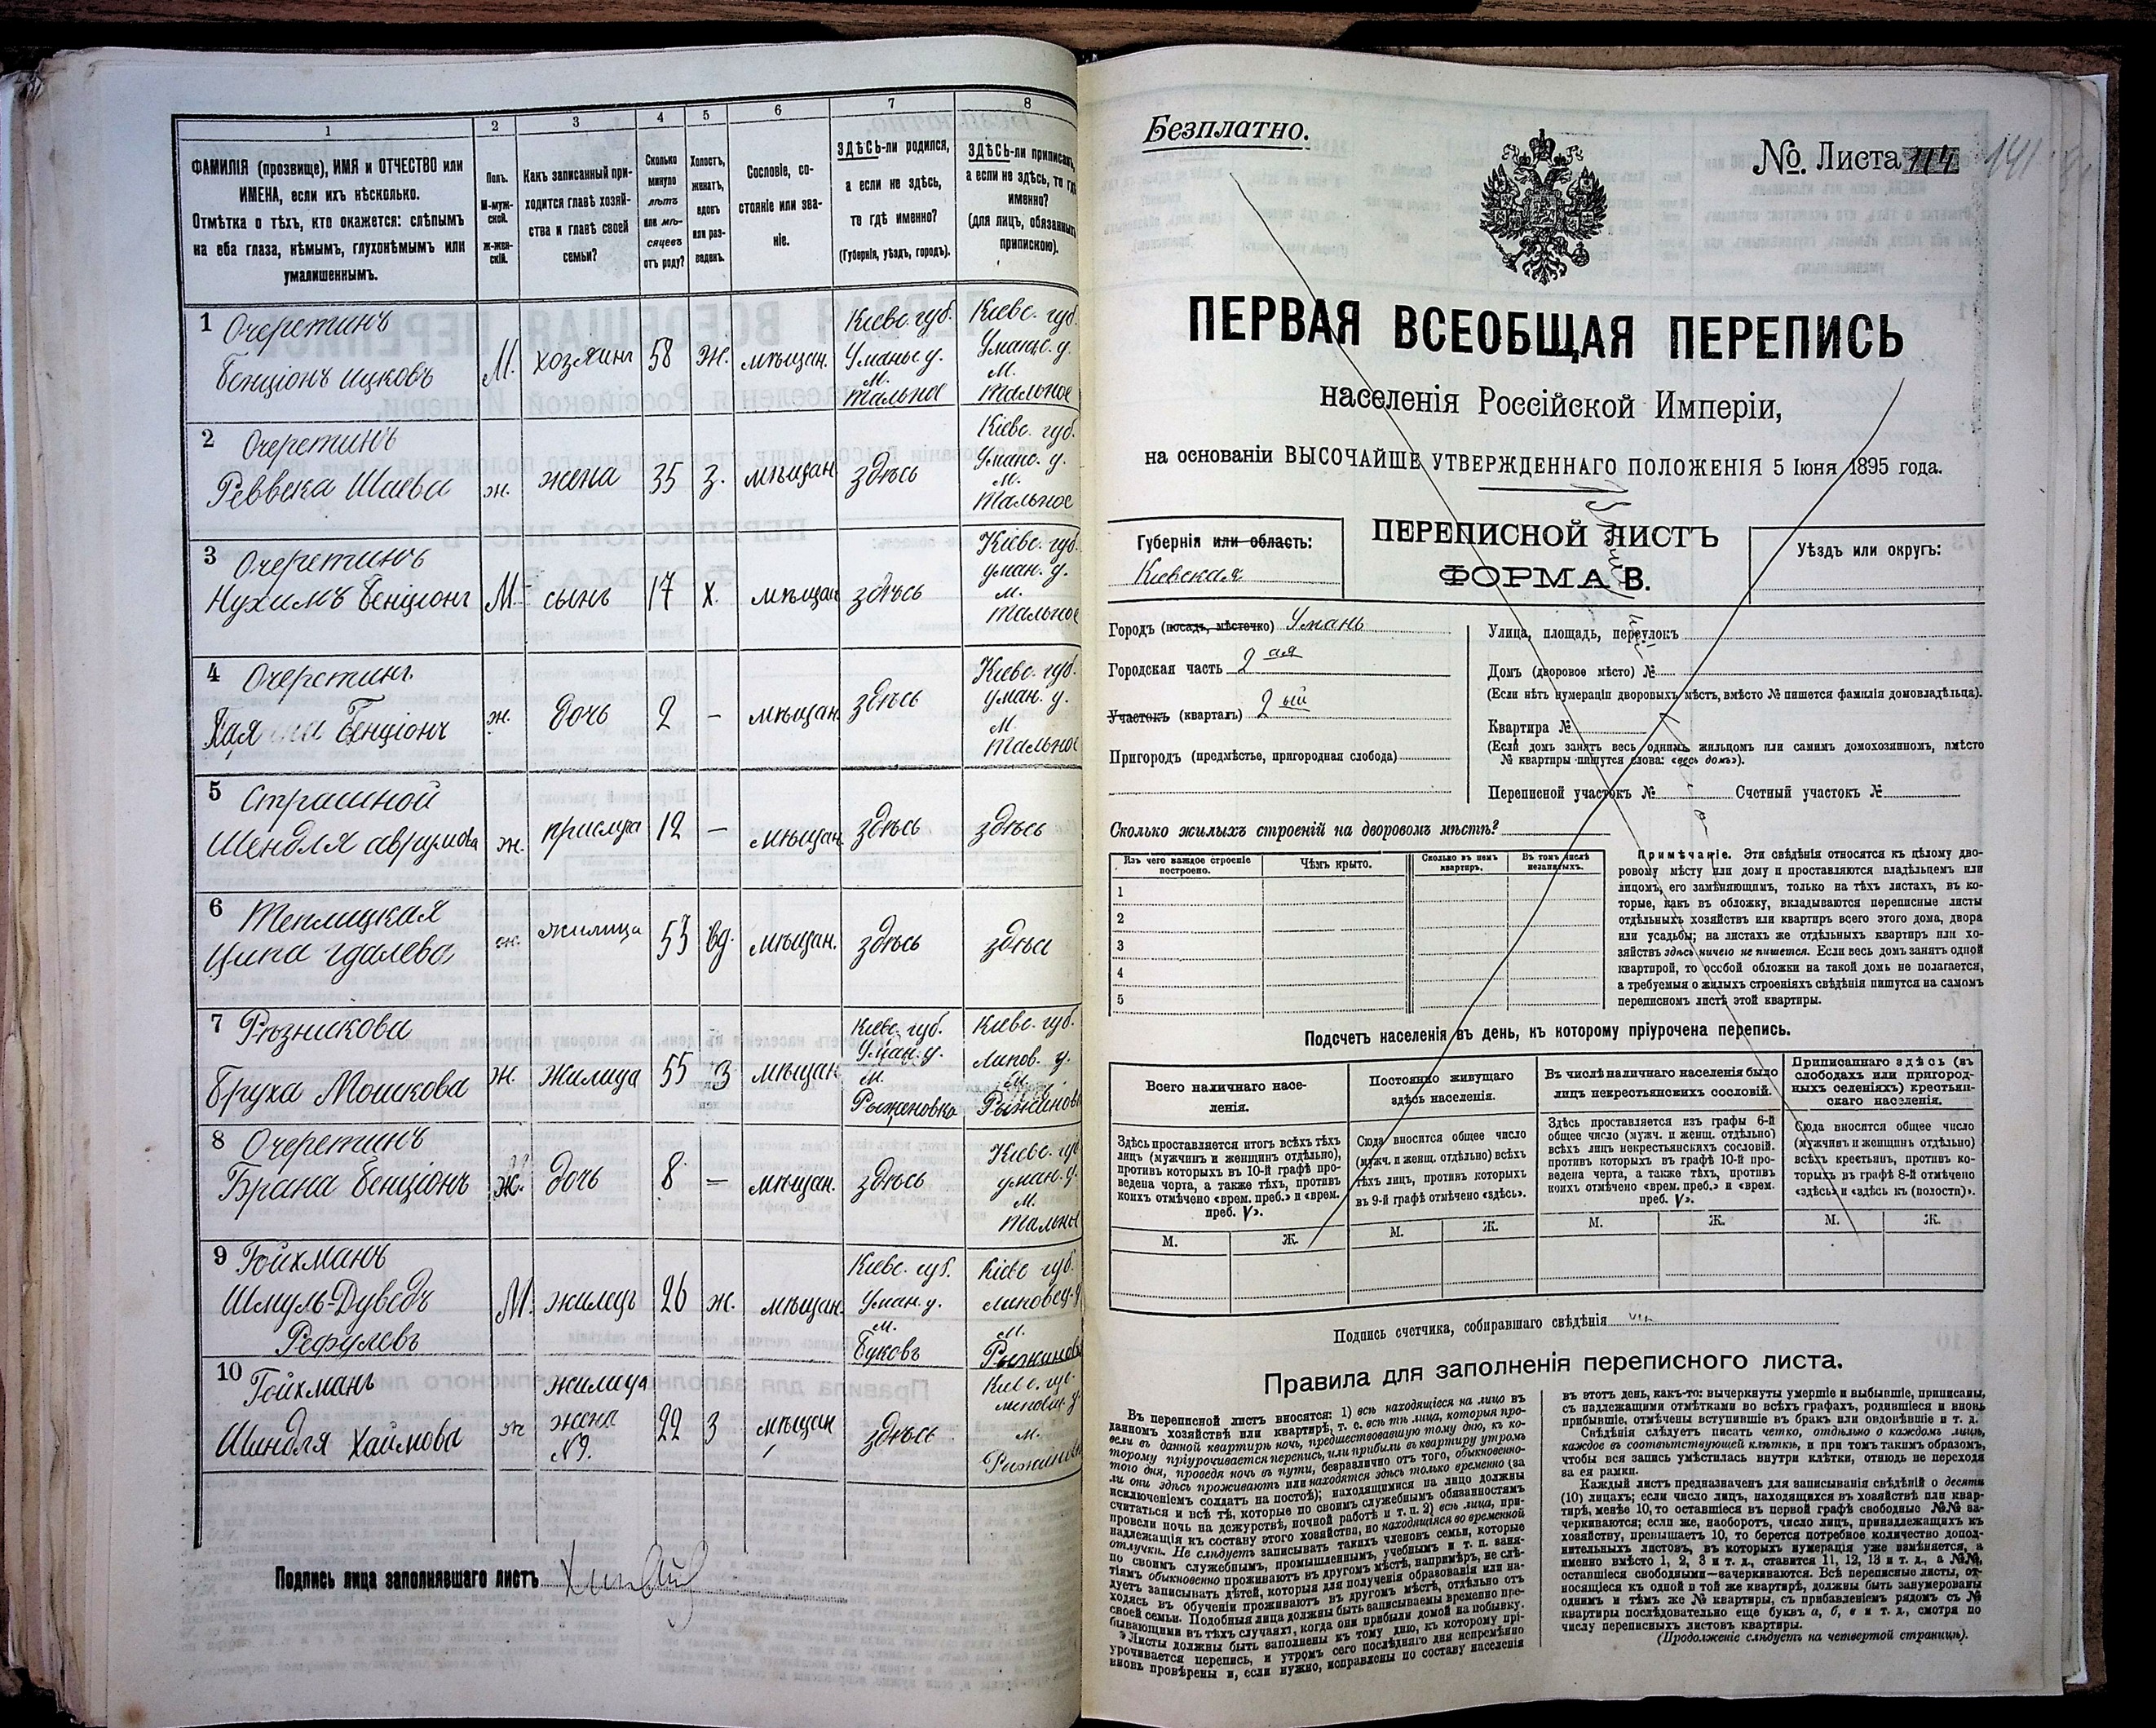 1
2
3
4
5
6
7
8
ФАМИЛІЯ (прозвище), ИМЯ и ОТЧЕСТВО или
ИМЕНА, если ихъ нѣсколько.
Отмѣтка о тѣхъ, кто окажется: слѣпымъ
на оба глаза, нѣмымъ, глухонѣмымъ или
умалишеннымъ.
Полъ.
М-муж-
ской.
Ж-жен-
скій.
Какъ записанный при-
ходится главѣ хозяй-
ства и главѣ своей
семьи?
Сколько
минуло
лѣтъ
или мѣ-
сяцевъ
отъ роду?
Холостъ,
женатъ,
вдовъ
или раз-
веденъ.
Сословіе, со-
стояніе или зва-
ніе.
ЗДѢСЬ-ли родился,
а если не здѣсь,
то гдѣ именно?
(Губернія, уѣздъ, городъ).
ЗДѢСЬ-ли приписанъ,
а если не здѣсь, то гдѣ
именно?
(для лицъ, обязанныхъ
припискою).
1 Очеретинъ
Бенціонъ Ицковъ
М.
хозяинъ
58
ж.
мѣщан.
Кіевс. губ.
Уманьс у.
м.
Тальное
Кіевс. губ.
Уманьс. у.
м.
Тальное
2 Очеретинъ
Реввека Шаева
ж.
жена
35
з.
мѣщан
здѣсь
Кіевс. губ.
Уманс. у.
м.
Тальное
3 Очеретинъ
Нухимъ Бенціонъ
М.
сынъ
17
х.
мѣщан
здѣсь
Кіевс. губ.
уман. у.
м.
Тальное
4 Очеретинъ
Бенціонъ
ж.
дочь
2
—
мѣщан.
здѣсь
Кіевс. губ.
уман. у.
м.
Тальное
5 Страшной
Шендля аврумова
ж.
прислуга
12
—
мѣщан.
здѣсь
здѣсь
6 Теплицкая
Ципа гдалева
ж.
жилица
53
вд.
мѣщан.
здѣсь
здѣсь
7 Рѣзникова
Бруха Мошкова
ж.
жилица
55
з
мѣщан
Кіевс. губ.
Уман. у.
м.
Рыжановка
Кіевс. губ.
Липов. у.
м.
8 Очеретинъ
Брана Бенціонъ
ж.
дочь
8
—
мѣщан.
здѣсь
Кіевс. губ
уман. у.
м.
Тальное
9 Гойхманъ
Шмуль-Дуведъ
Рефулевъ
М.
жилецъ
26
ж.
мѣщан.
Кіевс. губ.
Уман. у.
м.
Буковъ
Кіевс губ.
липовец. у
м.
10
Гойхманъ
Шиндля Хаимова
ж
жилица
жена
№9.
22
з
мѣщан
здѣсь
м.
Подпись лица заполнявшаго листъ
Безплатно.
№ Листа 114
141
ПЕРВАЯ ВСЕОБЩАЯ ПЕРЕПИСЬ
населенія Россійской Имперіи,
на основаніи ВЫСОЧАЙШЕ УТВЕРЖДЕННАГО ПОЛОЖЕНІЯ 5 Іюня 1895 года.
Губернія или область:
Кіевская
ПЕРЕПИСНОЙ ЛИСТЪ
ФОРМА В.
Уѣздъ или округъ:
Городъ (посадъ, мѣстечко) Умань
Городская часть 2 ая
Участокъ (кварталъ) 2 ый
Пригородъ (предмѣстье, пригородная слобода)
Улица, площадь, переулокъ
Домъ (дворовое мѣсто) №
(Если нѣтъ нумераціи дворовыхъ мѣстъ, вмѣсто № пишется фамилія домовладѣльца).
Квартира №
(Если домъ занятъ весь однимъ жильцомъ или самимъ домохозяиномъ, вмѣсто
№ квартиры пишутся слова: «весь домъ»).
Переписной участокъ № Счетный участокъ №
Сколько жилыхъ строеній на дворовомъ мѣстѣ?
Изъ чего каждое строеніе
построено.
Чѣмъ крыто.
Сколько въ немъ
квартиръ.
Въ томъ числѣ
незанятыхъ.
1
2
3
4
5
Примѣчаніе. Эти свѣдѣнія относятся къ цѣлому дво-
ровому мѣсту или дому и проставляются владѣльцемъ или
лицомъ, его замѣняющимъ, только на тѣхъ листахъ, въ ко-
торые, какъ въ обложку, вкладываются переписные листы
отдѣльныхъ хозяйствъ или квартиръ всего этого дома, двора
или усадьбы; на листахъ же отдѣльныхъ квартиръ или хо-
зяйствъ здѣсь ничего не пишется. Если весь домъ занятъ одной
квартирой, то особой обложки на такой домъ не полагается,
а требуемыя о жилыхъ строеніяхъ свѣдѣнія пишутся на самомъ
переписномъ листѣ этой квартиры.
Подсчетъ населенія въ день, къ которому пріурочена перепись.
Всего наличнаго насе-
ленія.
Постоянно живущаго
здѣсь населенія.
Въ числѣ наличнаго населенія было
лицъ некрестьянскихъ сословій.
Приписаннаго здѣсь (въ
слободахъ или пригород-
ныхъ селеніяхъ) крестьян-
скаго населенія.
Здѣсь проставляется итогъ всѣхъ тѣхъ
лицъ (мужчинъ и женщинъ отдѣльно),
противъ которыхъ въ 10-й графѣ про-
ведена черта, а также тѣхъ, противъ
коихъ отмѣчено «врем. преб.» и «врем.
преб. V».
Сюда вносится общее число
(мужч. и женщ. отдѣльно) всѣхъ
тѣхъ лицъ, противъ которыхъ
въ 9-й графѣ отмѣчено «здѣсь».
Здѣсь проставляется изъ графы 6-й
общее число (мужч. и женщ. отдѣльно)
всѣхъ лицъ некрестьянскихъ сословій.
противъ которыхъ въ графѣ 10-й про-
ведена черта, а также тѣхъ, противъ
коихъ отмѣчено «врем. преб.» и «врем.
преб. V».
Сюда вносится общее число
(мужчинъ и женщинъ отдѣльно)
всѣхъ крестьянъ, противъ ко-
торыхъ въ графѣ 8-й отмѣчено
«здѣсь» и «здѣсь къ (волости)».
М. Ж. М. Ж. М. Ж. М. Ж.
Подпись счетчика, собиравшаго свѣдѣнія
Правила для заполненія переписного листа.
Въ переписной листъ вносятся: 1) всѣ находящіеся на лицо въ
данномъ хозяйствѣ или квартирѣ, т. е. всѣ тѣ лица, которыя про-
вели въ данной квартирѣ ночь, предшествовавшую тому дню, къ ко-
торому пріурочивается перепись, или прибыли въ квартиру утромъ
того дня, проведя ночь въ пути, безразлично отъ того, обыкновенно-
ли они здѣсь проживаютъ или находятся здѣсь только временно (за
исключеніемъ солдатъ на постоѣ); находящимися на лицо должны
считаться и всѣ тѣ, которые по своимъ служебнымъ обязанностямъ
провели ночь на дежурствѣ, ночной работѣ и т. п. 2) всѣ лица, при-
надлежащія къ составу этого хозяйства, но находящіяся во временной
отлучкѣ. Не слѣдуетъ записывать такихъ членовъ семьи, которые
по своимъ служебнымъ, промышленнымъ, учебнымъ и т. п. заня-
тіямъ обыкновенно проживаютъ въ другомъ мѣстѣ, напримѣръ, не слѣ-
дуетъ записывать дѣтей, которыя для полученія образованія или на-
ходясь въ обученіи проживаютъ въ другомъ мѣстѣ, отдѣльно отъ
своей семьи. Подобныя лица должны быть записываемы временно пре-
бывающими въ тѣхъ случаяхъ, когда они прибыли домой на побывку.
Листы должны быть заполнены къ тому дню, къ которому прі-
урочивается перепись, и утромъ сего послѣдняго дня непремѣнно
вновь провѣрены и, если нужно, исправлены по составу населенія
въ этотъ день, какъ-то: вычеркнуты умершіе и выбывшіе, приписаны,
съ надлежащими отмѣтками во всѣхъ графахъ, родившіеся и вновь
прибывшіе, отмѣчены вступившіе въ бракъ или овдовѣвшіе и т. д.
Свѣдѣнія слѣдуетъ писать четко, отдѣльно о каждомъ лицѣ,
каждое въ соотвѣтствующей клѣткѣ, и при томъ такимъ образомъ,
чтобы вся запись умѣстилась внутри клѣтки, отнюдь не переходя
за ея рамки.
Каждый листъ предназначенъ для записыванія свѣдѣній о десяти
(10) лицахъ; если число лицъ, находящихся въ хозяйствѣ или квар-
тирѣ, менѣе 10, то оставшіеся въ первой графѣ свободные №№ за-
черкиваются; если же, наоборотъ, число лицъ, принадлежащихъ къ
хозяйству, превышаетъ 10, то берется потребное количество допол-
нительныхъ листовъ, въ которыхъ нумерація уже измѣняется, а
именно вмѣсто 1, 2, 3 и т. д., ставится 11, 12, 13 и т. д., а №№,
оставшіеся свободными—зачеркиваются. Всѣ переписные листы, от-
носящіеся къ одной и той же квартирѣ, должны быть занумерованы
однимъ и тѣмъ же № квартиры, съ прибавленіемъ рядомъ съ №
квартиры послѣдовательно еще буквъ а, б, в и т. д., смотря по
числу переписныхъ листовъ квартиры.
(Продолженіе слѣдуетъ на четвертой страницѣ).